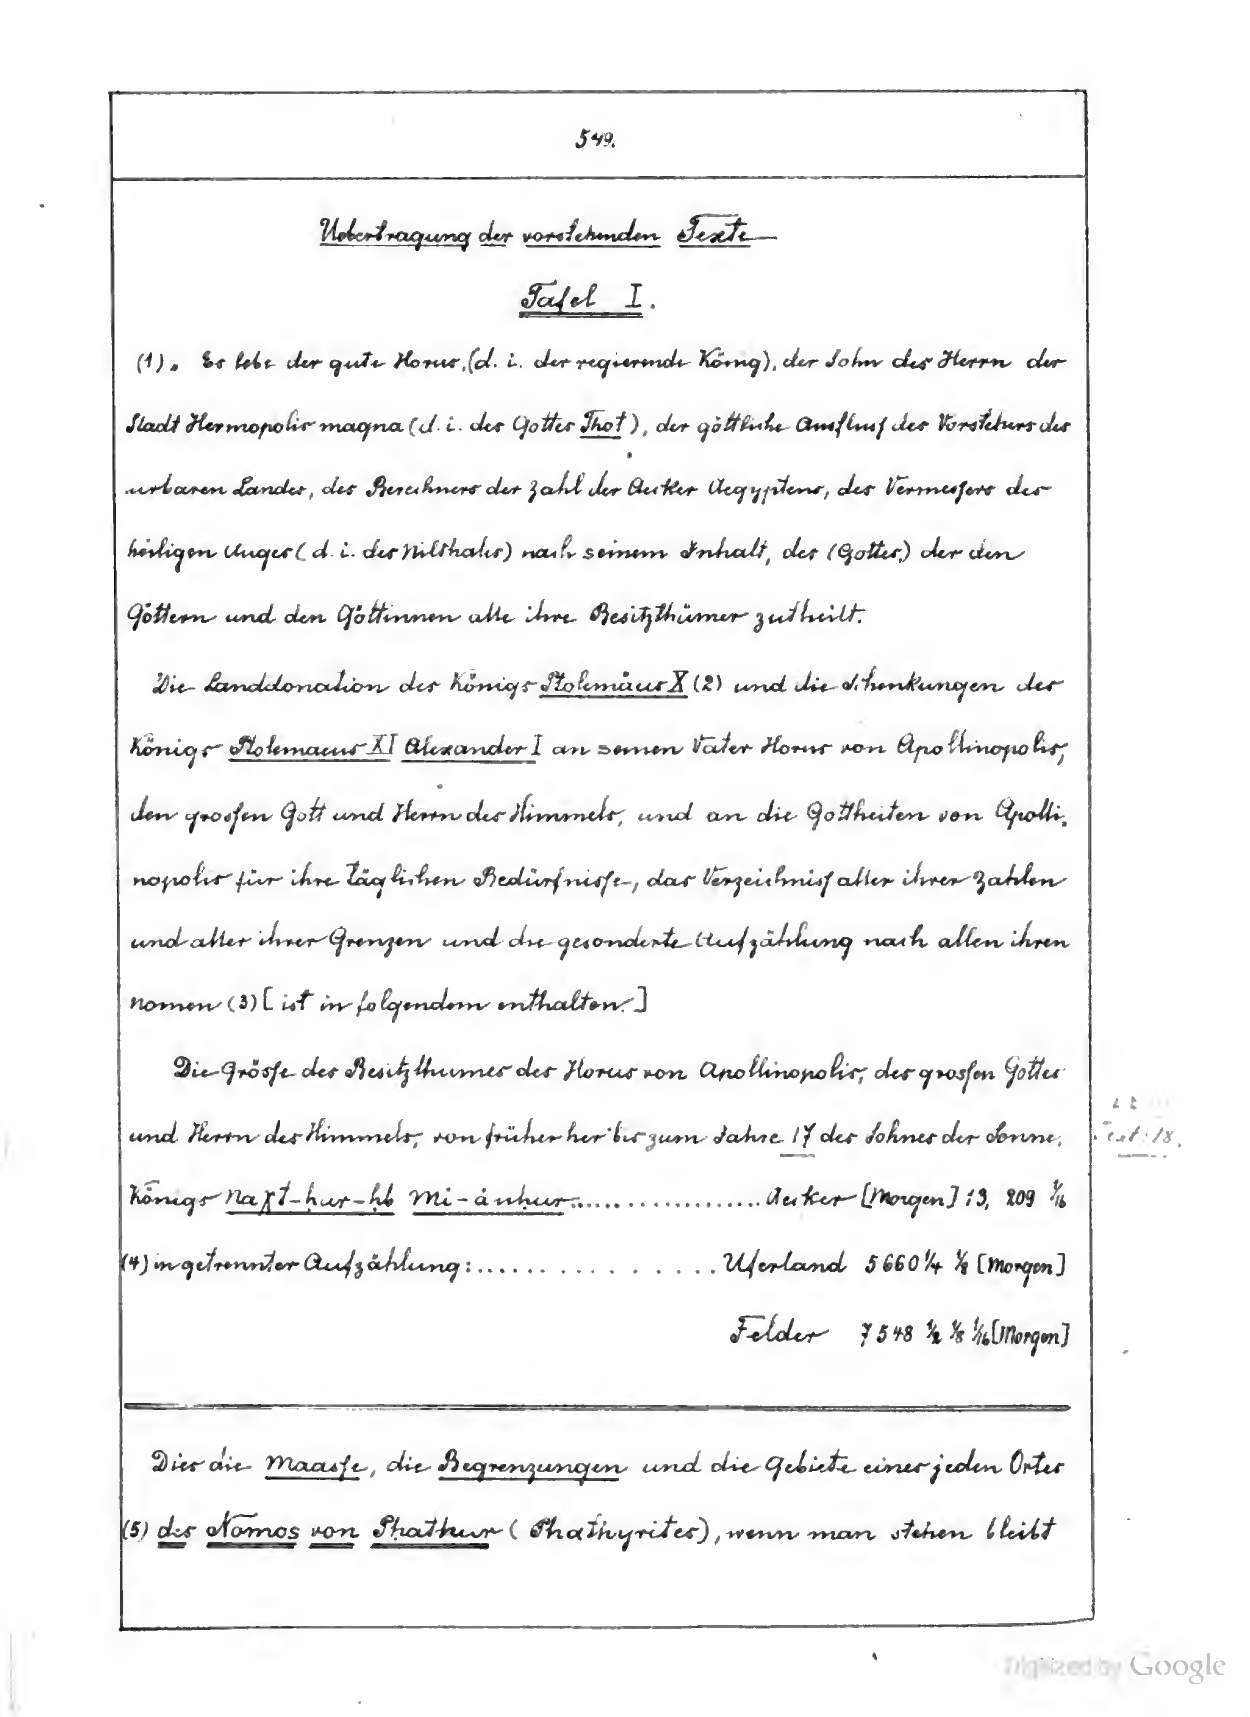 549.
Uebertragung der vorstehenden Texte
Tafel I.
(1). Es lebe der gute Horus, (d. i. der regierende König), der Sohn des Herrn der
Stadt Hermopolis magna (d. i. des Gottes Thot), der göttliche Ausfluss des Vorstehers des
urbaren Landes, des Berechners der Zahl der Aecker Aegyptens, des Vermessers des
heiligen Auges (d. i. des Nilthales) nach seinem Inhalt, des (Gottes,) der den
Göttern und den Göttinnen alle ihre Besitzthümer zutheilt.
Die Landdonation des Königs Ptolemäus X (2) und die Schenkungen des
Königs Ptolemaeus XI Alexander I an seinen Vater Horus von Apollinopolis,
den grossen Gott und Herrn des Himmels, und an die Gottheiten von Apolli-
nopolis für ihre täglichen Bedürfnisse, das Verzeichniss aller ihrer Zahlen
und aller ihrer Grenzen und die gesonderte Aufzählung nach allen ihren
Nomen (3) [ist in folgendem enthalten.]
Die Grösse des Besitzthumes des Horus von Apollinopolis, des grossen Gottes
und Herrn des Himmels, von früher her bis zum Jahre 17 des Sohnes der Sonne,
Text: 18.
Königs Naχt-ḥur-ḥb Mi-ȧnḥur:.................. Aecker [Morgen] 13, 209 1/16
(4) in getrennter Aufzählung:............... Uferland 5660 1/4 1/8 [Morgen]
Felder 7548 1/2 1/8 1/16 [Morgen]
Dies die Maasse, die Begrenzungen und die Gebiete eines jeden Ortes
(5) des Nomos von Phathur (Phathyrites), wenn man stehen bleibt
Digitized by Google